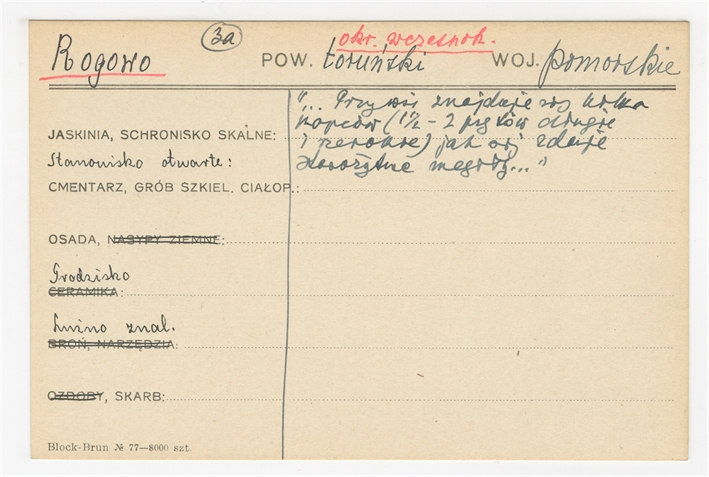 3a
okr. wczesnoh.
Rogowo POW. toruński WOJ. pomorskie
"... Przy wsi znajduje się kilka
kopców (1½ - 2 prętów długie
JASKINIA, SCHRONISKO SKALNE: i szerokie) jak się zdaje
Stanowisko otwarte: starożytne mogiły..."
CMENTARZ, GRÓB SZKIEL. CIAŁOP.:
OSADA, NASYPY ZIEMNE:
Grodzisko
CERAMIKA:
Luźno znal.
BROŃ, NARZĘDZIA:
OZDOBY, SKARB:
Block-Brun № 77—8000 szt.